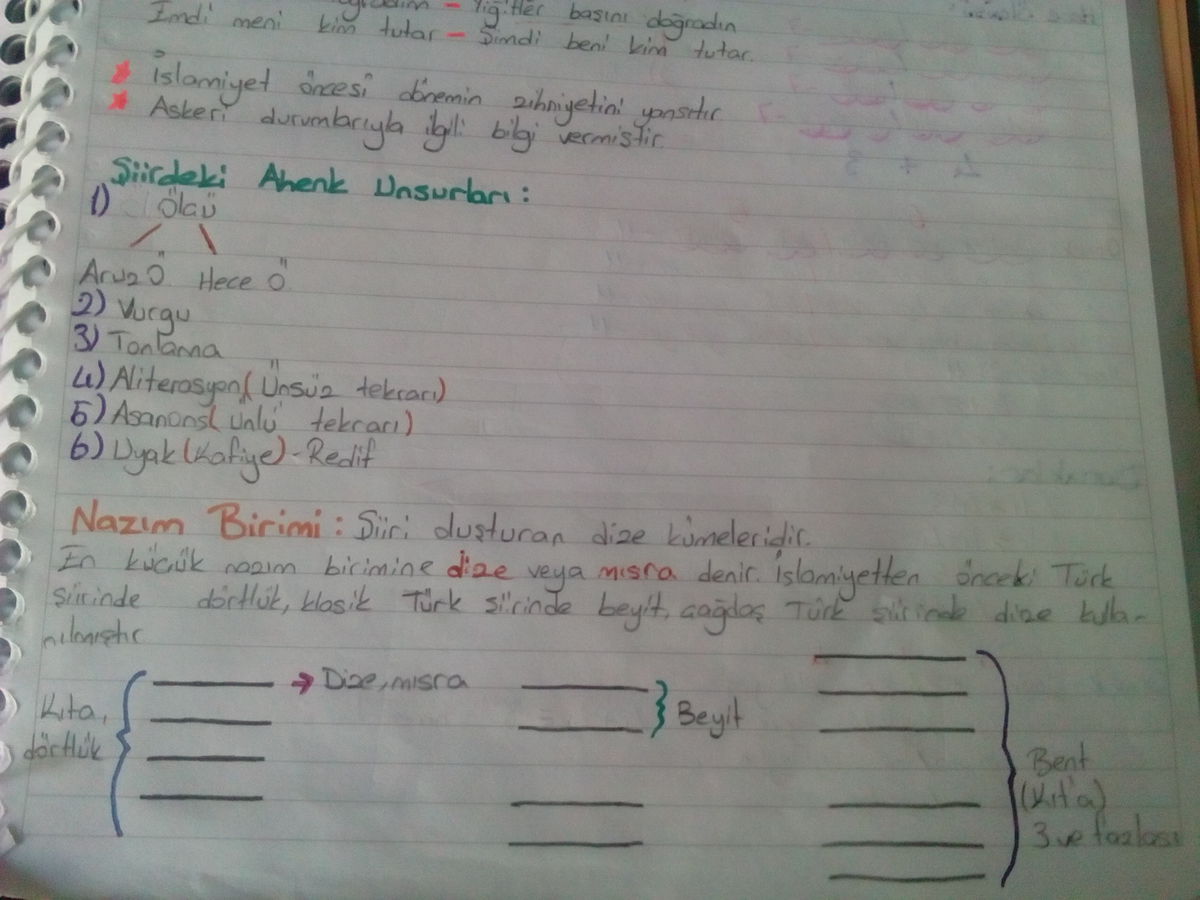 – Yiğitler başını doğradın
İmdi meni kim tutar – Şimdi beni kim tutar.
İslamiyet öncesi dönemin zihniyetini yansıtır
Askeri durumlarıyla ilgili bilgi vermiştir.
Şiirdeki Ahenk Unsurları:
1) Ölçü
Aruz Ö Hece Ö
2) Vurgu
3) Tonlama
4) Aliterasyon (Ünsüz tekrarı)
5) Asanons (Ünlü tekrarı)
6) Uyak (Kafiye) - Redif
Nazım Birimi: Şiiri oluşturan dize kümeleridir.
En küçük nazım birimine dize veya mısra denir. İslamiyetten önceki Türk
şiirinde dörtlük, klasik Türk şiirinde beyit, çağdaş Türk şiirinde dize kulla-
nılmıştır
Kıta, dörtlük
→ Dize, mısra
Beyit
Bent
(Kıt'a)
3 ve fazlası